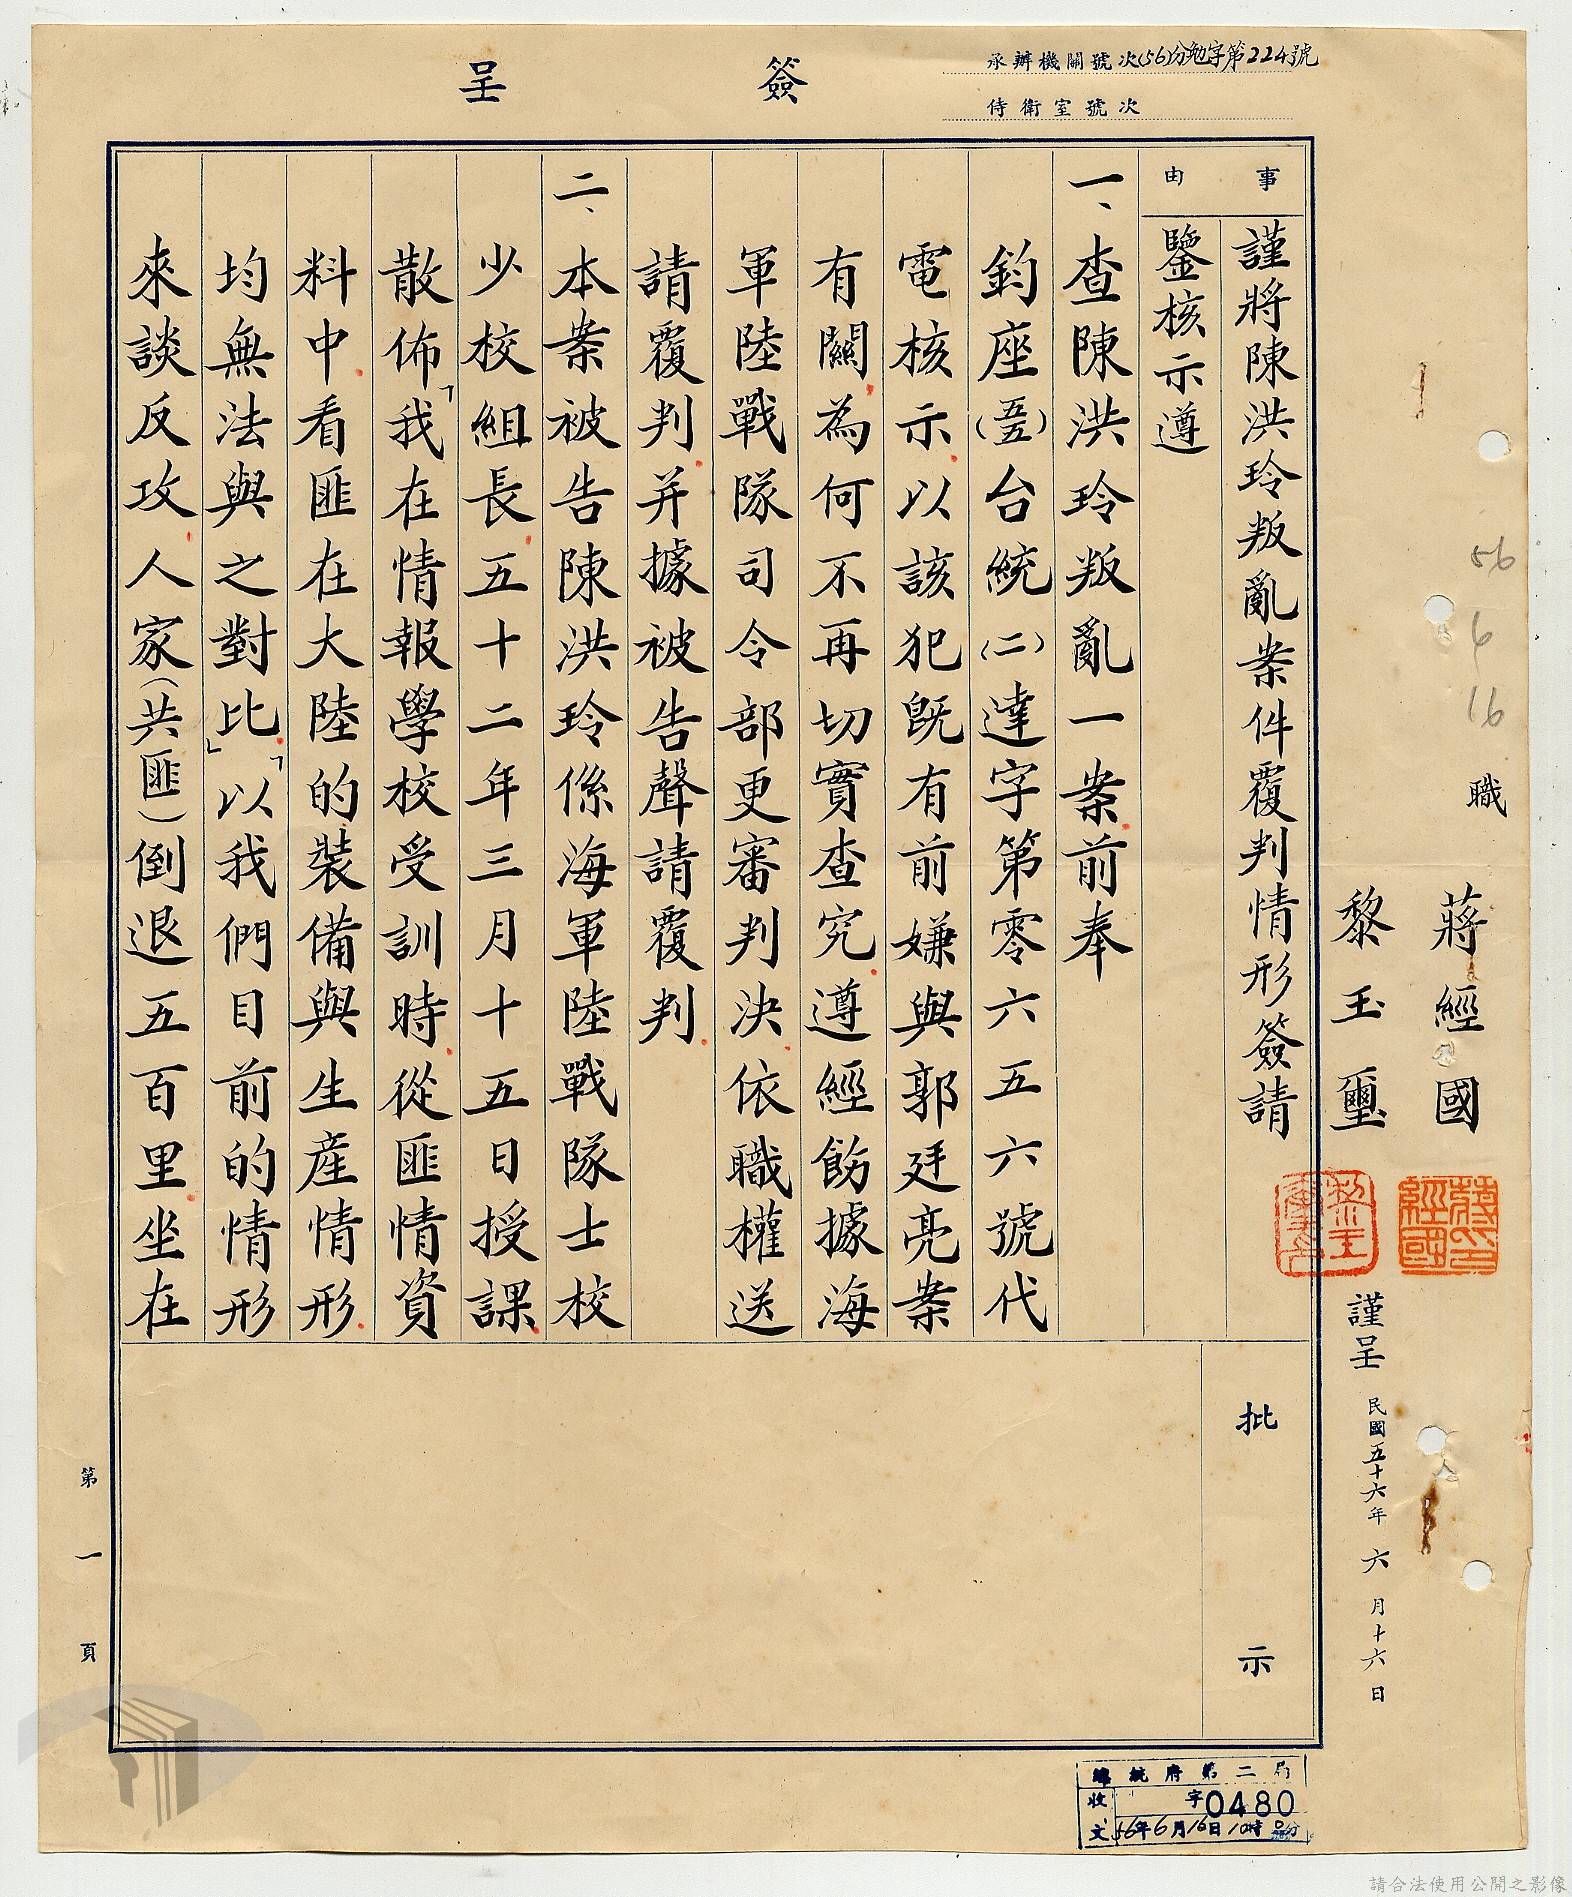 簽呈
承辦機關號次(56)分勉字第224號
侍衛室號次
56 6 16
職
蔣經國
黎玉璽
謹呈
民國五十六年六月十六日
事由
謹將陳洪玲叛亂案件覆判情形簽請
鑒核示遵
一、查陳洪玲叛亂一案前奉
鈞座(五五)台統(二)達字第零六五六號代
電核示以該犯既有前嫌與郭廷亮案
有關為何不再切實查究遵經飭據海
軍陸戰隊司令部更審判決依職權送
請覆判并據被告聲請覆判
二、本案被告陳洪玲係海軍陸戰隊士校
少校組長五十二年三月十五日授課
散佈「我在情報學校受訓時從匪情資
料中看匪在大陸的裝備與生產情形
均無法與之對比」「以我們目前的情形
來談反攻人家(共匪)倒退五百里坐在
批示
第一頁
總統府第二局
收文
字0480
56年6月16日10時0分
請合法使用公開之影像